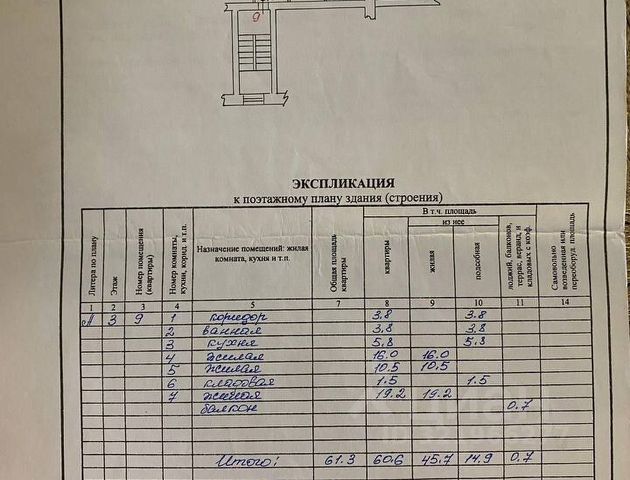 9
ЭКСПЛИКАЦИЯ
к поэтажному плану здания (строения)
Литера по плану
Этаж
Номер помещения (квартиры)
Номер комнаты, кухни, корид. и т.п.
Назначение помещений: жилая комната, кухня и т.п.
Общая площадь квартиры
В т.ч. площадь
из нее
квартиры
жилая
подсобная
лоджий, балконов, террас, веранд, и кладовых с коэф.
Самовольно возведенная или переоборуд. площадь
1 2 3 4 5 7 8 9 10 11 14
А 3 9 1 коридор 3,8 3,8
2 ванная 3,8 3,8
3 кухня 5,8 5,8
4 жилая 16.0 16.0
5 жилая 10.5 10,5
6 кладовая 1.5 1.5
7 жилая 19.2 19.2
балкон 0.7
Итого: 61.3 60.6 45.7 14.9 0.7